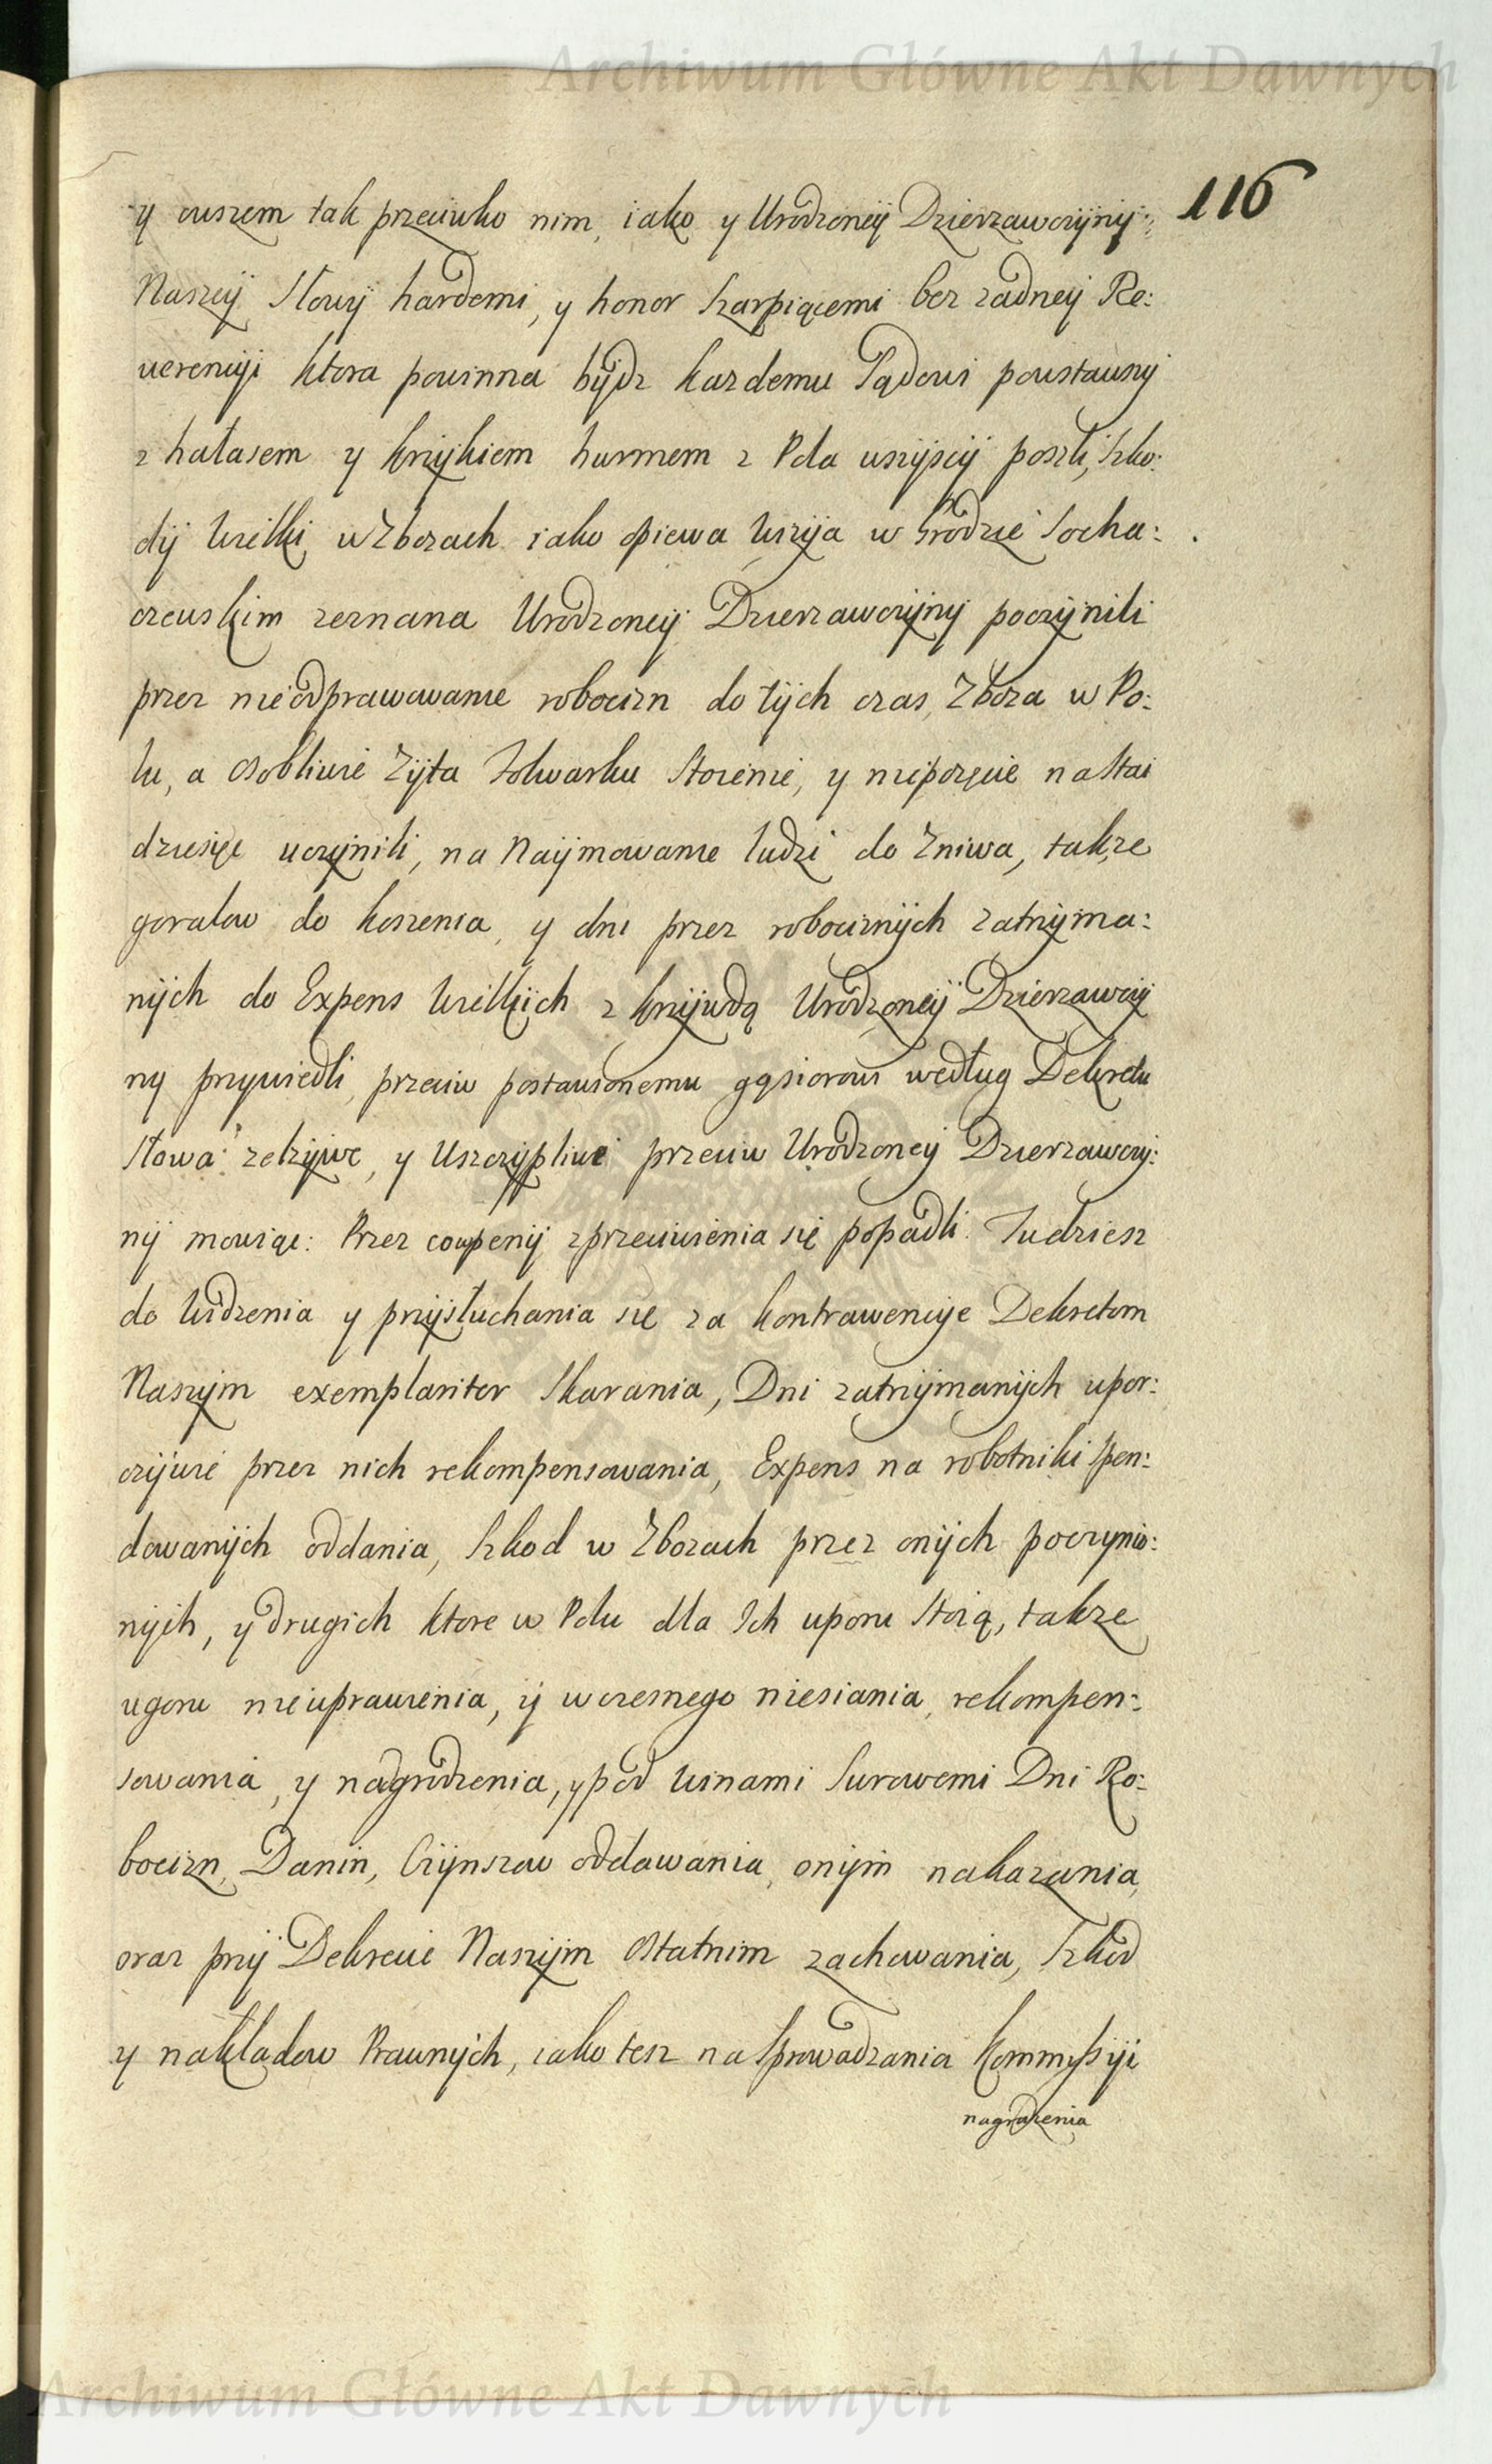 Archiwum Główne Akt Dawnych
116
y owszem tak przeciwko nim, iako y Urodzoneÿ Dzierzawczÿnÿ:
Naszeÿ Słowÿ hardemi, y honor szarpiącemi bez zadneÿ Re:
werencÿi ktora powinna bÿdz kazdemu Sądowi powstawszÿ
z hałasem y krzÿkiem hurmem z Pola wszÿscÿ poszli, szko:
dÿ wielki w Zbozach iako opiewa wizÿa w Grodzie Socha:
czewskim zeznana Urodzoneÿ Dzierzawczÿnÿ poczÿnili
przez nieodprawowanie robocizn do tÿch czas, Zboza w Po:
lu, a osobliwie Zÿta Folwarku Stoienie, y niepozęcie nastai
dziesięć uczÿnili, na Naÿmowanie ludzi do Zniwa, takze
goralow do koszenia, y dni przez robociznÿch zatrzÿma:
nÿch do Expens wielkÿich z krzÿwdą Urodzoneÿ Dzierzawczÿ
ny przywiedli, przeciw postawionemu gąsiorowi według Dekretu
Słowa zelzÿwe, y Uszczÿpliwe przeciw Urodzoneÿ Dzierzawczÿ:
nÿ mowiąc: Przez co w penÿ zprzeciwienia się popadli. Tudziesz
do widzenia y przÿsłuchania się za kontrawencÿe Dekretom
Naszÿm exemplariter skarania, Dni zatrzÿmanÿch upor:
czÿwie przez nich rekompensowania, Expens na robotniki spen:
dowanÿch oddania, szkod w Zbozach przez onÿch poczynio:
nÿch, y drugich ktore w Polu dla Ich uporu stoią, takze
ugoru nieuprawienia, ÿ wczesnego niesiania, rekompen:
sowania, y nagrodzenia, y pod winami surowemi Dni Ro:
bocizn, Danin, Czÿnszow oddawania, onÿm nakazania,
oraz przÿ Dekrecie Naszÿm ostatnim zachowania, szkod
y nakładow Prawnÿch, iako tesz na sprowadzania Kommyssÿi
nagrodzenia
Archiwum Główne Akt Dawnych